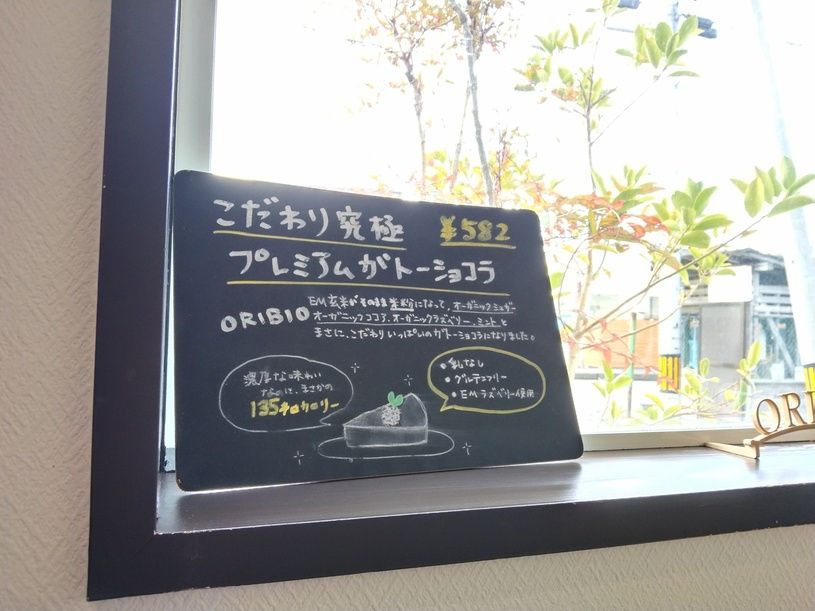 こだわり究極 ¥582
プレミアムガトーショコラ
ORIBIO
EM玄米がそのまま米粉になって、オーガニックシュガー
オーガニックココア、オーガニックラズベリー、ミントと
まさに、こだわりいっぱいのガトーショコラになりました。
濃厚な味わい
なのに、まさかの
135キロカロリー
• 乳なし
• グルテンフリー
• EMラズベリー使用
ORI